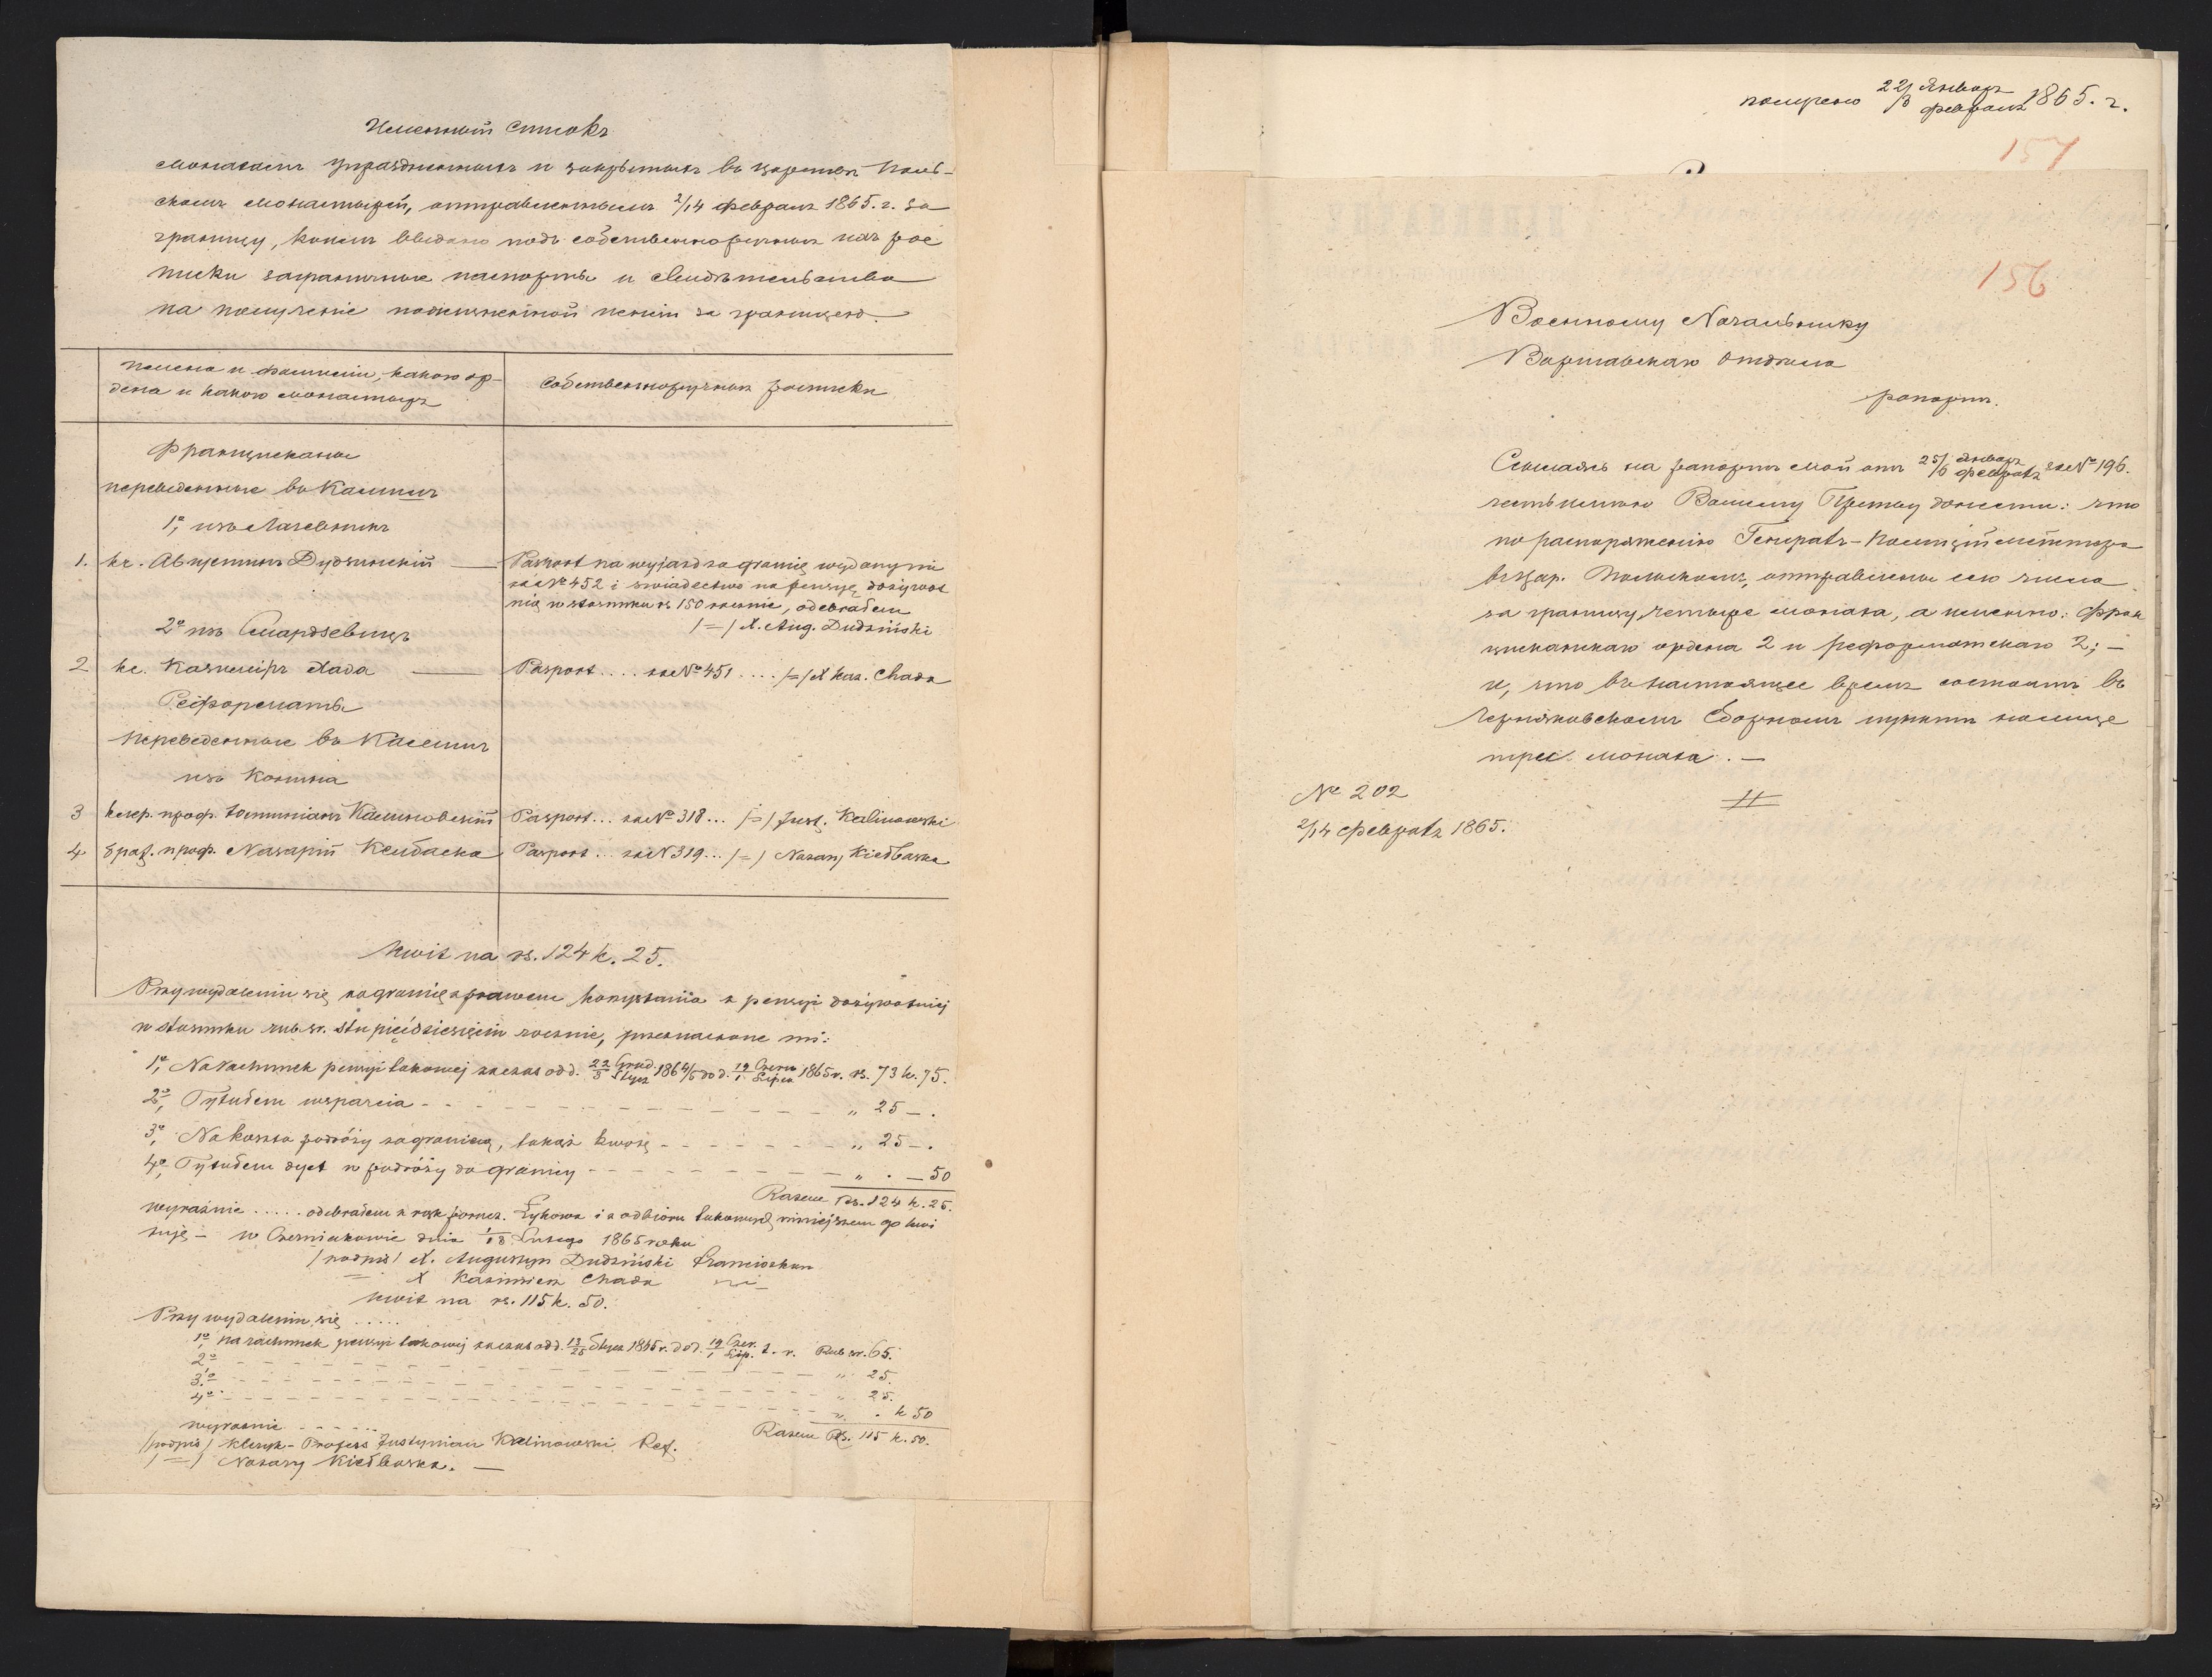 Именный списокъ
монахамъ упраздненныхъ и закрытыхъ въ царствѣ Поль-
скомъ монастырей, отправленнымъ 2/14 февраля 1865. г. за
границу, коимъ выдано подъ собственноручныя ихъ рос
писки заграничные паспорты и свидѣтельства
на полученіе пожизненной пенсіи за границею.
Имена и фамиліи, какого ор-
дена и какого монастыря
Собственноручныя росписки
Францискане
переведенные въ Калишъ
1º, изъ Лагевникъ
1. кс. Августинъ Дудзинскій — Pasport na wyjazd za granicę wydany mi
za Nº 452 i świadectwo na pensyę dożywot
nią w stosunku rs 150 rocznie, odebrałem
/=/ X. Aug. Dudziński
2º изъ Смардзевицъ
2 кс. Казимірѣ Хада — Pasport .... za Nº 451 .... /=/ X Kaz. Chada
Реформаты
переведенные въ Калишъ
изъ Конина
3 клер. проф. Юстиніанъ Калиновскій Pasport... za Nº 318... /=/ Just. Kalinowski
4 брат. проф. Назарій Келбаска Pasport... za N 319... /=/ Nazary Kiełbaska
Kwit na rs. 124 k. 25.
Przy wydaleniu się zagranicę z prawem korzystania z pensyi dożywotniej
w stosunku rub sr. stu pięćdziesięciu rocznie, przeznaczone mi:
1º, Na rachunek pensyi takowej za czas od d. 22/3 Grud./Stycz 1864/5 do d. 19/1 Czerw/Lipca 1865 r. rs. 73 k. 75.
2º, Tytułem wsparcia - - - " 25 — .
3º, Na koszta podróży zagranicą, takąż kwotę - - - " 25 — .
4º, Tytułem dyet w podróży do granicy - - - " . — 50
Razem Rs. 124 k. 25.
wyraźnie ..... odebrałem z rąk Łykowa i z odbioru takowych niniejszem go kwi
tuję — w Czerniakowie dnia 1/13 Lutego 1865 roku
/podpis/ X. Augustyn Dudziński Franciszkan
= X Kazimierz Chada
Kwit na rs. 115 k. 50.
Przy wydaleniu się .....
1º na rachunek pensyi takowej za czas od d. 13/25 Stycz 1865 r. do d. 19/1 Czer./Lip. t. r. Rub sr. 65.
2º - - - " 25.
3º - - - " 25.
4º - - - " . k 50
wyraźnie - - - - Razem Rs. 115 k. 50.
/podpis/ Kleryk-Profess Justynian Kalinowski Ref.
/=/ Nazary Kiełbaska. —
получено 22/3 Января/Февраля 1865. г.
157
156
Военному Начальнику
Варшавскаго Отдѣла
рапортъ.
Ссылаясь на рапортъ мой отъ 25/6 Января/Февраля за Nº 196.
честь имѣю Вашему Пр-тву донести: что
по распоряженію Генералъ-Полиційместера
въ Цар. Польскомъ, отправлены сего числа
за границу четыре монаха, а именно: Фран
цисканскаго ордена 2 и реформатскаго 2; —
и, что въ настоящее время состоитъ въ
Черняковскомъ Сборномъ пунктѣ
три монаха. —
Nº 202
2/14 Февраля 1865.